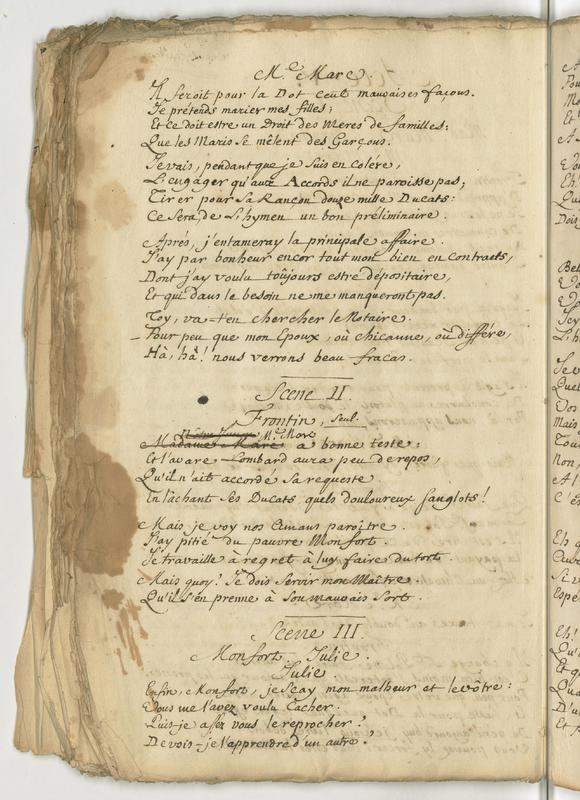 M.e Marc.
Il feroit pour la Dot Cent mauvaises façons.
Je prétends marier mes filles;
Et ce doit estre un Droit des Meres de familles:
Que les Maris se mêlent des Garçons.
Je vais, pendant que je suis en colére,
L'engager qu'aux Accords il ne paroisse pas;
Tirer pour sa Rançon douze mille Ducats:
Ce sera, de L'hymen un bon préliminaire.
Aprés, j'entameray la principale affaire.
J'ay par bonheur encor tout mon bien en contracts,
Dont j'ay voulu toûjours estre dépositaire,
Et qui dans le besoin ne me manqueront pas.
Toy, va-t'en chercher le Notaire.
Pour peu que mon Epoux, où chicanne, où différe,
Hà, hà! nous verrons beau fracas.
Scene II.
Frontin, Seul.
M.e Marc
Madame Marc a bonne teste:
Et l'avare Lombard aura peu de repos,
Qu'il n'ait accordé sa requeste
En lâchant ses Ducats quels douloureux sanglots!
Mais je voy nos Amans paroître.
J'ay pitié du pauvre Monfort.
Je travaille à regret à luy faire du tort.
Mais quoy! Je dois servir mon Maître
Qu'il s'en prenne à son mauvais Sort.
Scene III.
Monfort, Julie.
Julie.
Enfin, Monfort, je sçay mon malheur et le vôtre:
Vous me l'avez voulu Cacher.
Puis-je assez vous le reprocher?
Devois-je l'apprendre d'un autre?